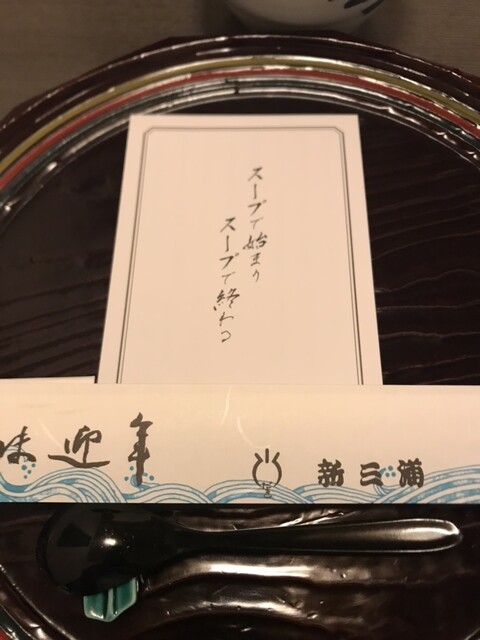 スープで始まり
スープで終わる
味迎年
新三浦